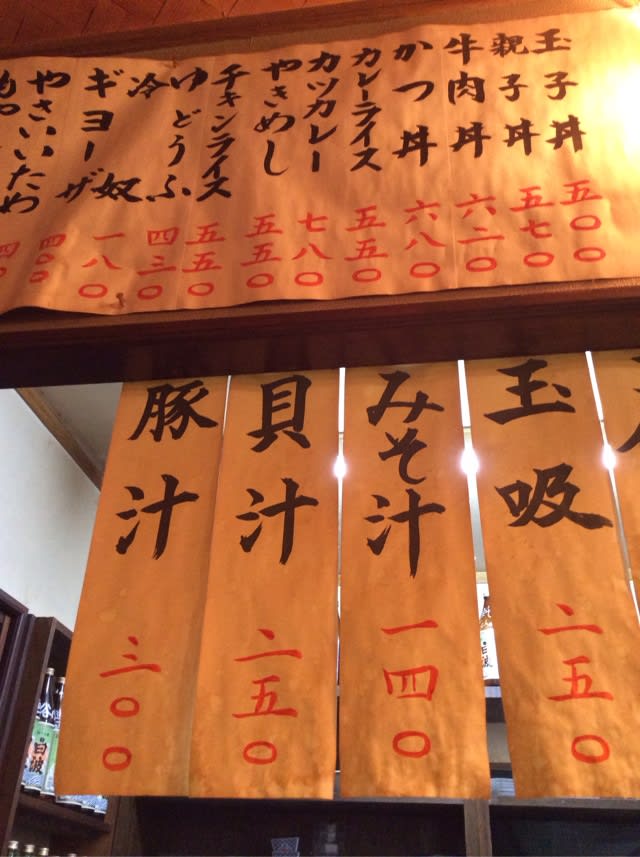 玉子丼 五〇〇
親子丼 五七〇
牛肉丼 六二〇
かつ丼 六八〇
カレーライス 五五〇
カツカレー 七八〇
やきめし 五五〇
チキンライス 五五〇
ゆどうふ 四三〇
冷奴 一八〇
ギヨーザ 四〇〇
やさいいため
玉吸 二五〇
みそ汁 一四〇
貝汁 二五〇
豚汁 三〇〇
白波